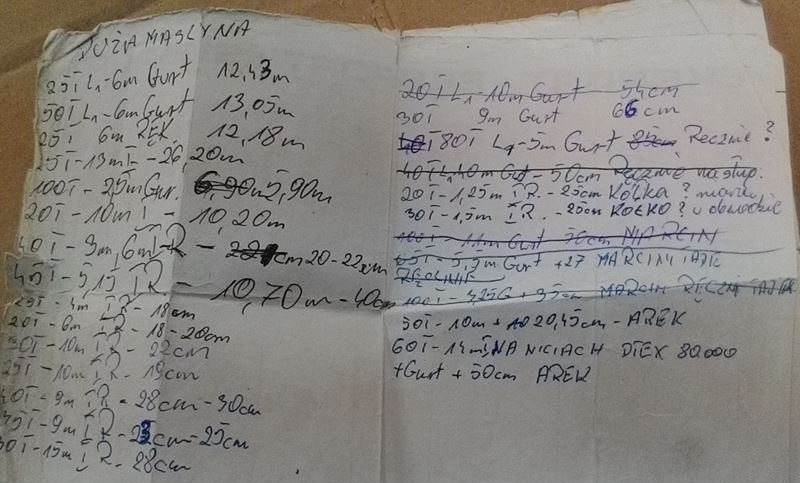 DUŻA MASZYNA
25T L1-6m Gurt 12,43m
50T L1-6m Gurt 13,05m
25T 6m REK. 12,18m
25T-13m T-26,20m
100T-2,5m Gur. 6,90m 5,90m
20T-10m T-10,20m
40T-3m,6m T R-cm 20-22cm
45T-5,15 T R.-10,70m-40cm
25T-4m T R-18cm
20T-6m T R-18-20cm
50T-10m T R-22cm
25T-10m T R-19cm
40T-9m T R-28cm-30cm
35T-9m T R-23cm-25cm
30T-15m T R-28cm
20T L1-10m Gurt 54cm
30T 9m Gurt 66cm
80T L1-5m Gurt 85cm Ręcznie?
40T L1 10m Gurt-50cm Ręcznie na stup.
20T-1,25m T R.-25cm KÓŁKA?
30T-1,5m T R.-25cm KOŁKO? u obwodzie
100T-11m Gurt 50cm MARCIN
65T-5,5m Gurt +27 MARCIN
RĘCZNIE
100T-425G+35cm MARCIN RĘCZNI
50T-10m+20,45cm-AREK
60T-14m T, NA NICIACH DTEX 80000
+Gurt+50cm AREK